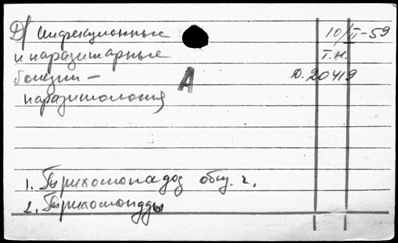 D/ Инфекционные 10/II-59
и паразитарные Т.Н.
болезни — Ю.20419
паразитология А
1. Трихомонадоз общ. ч.
2. Трихомонады